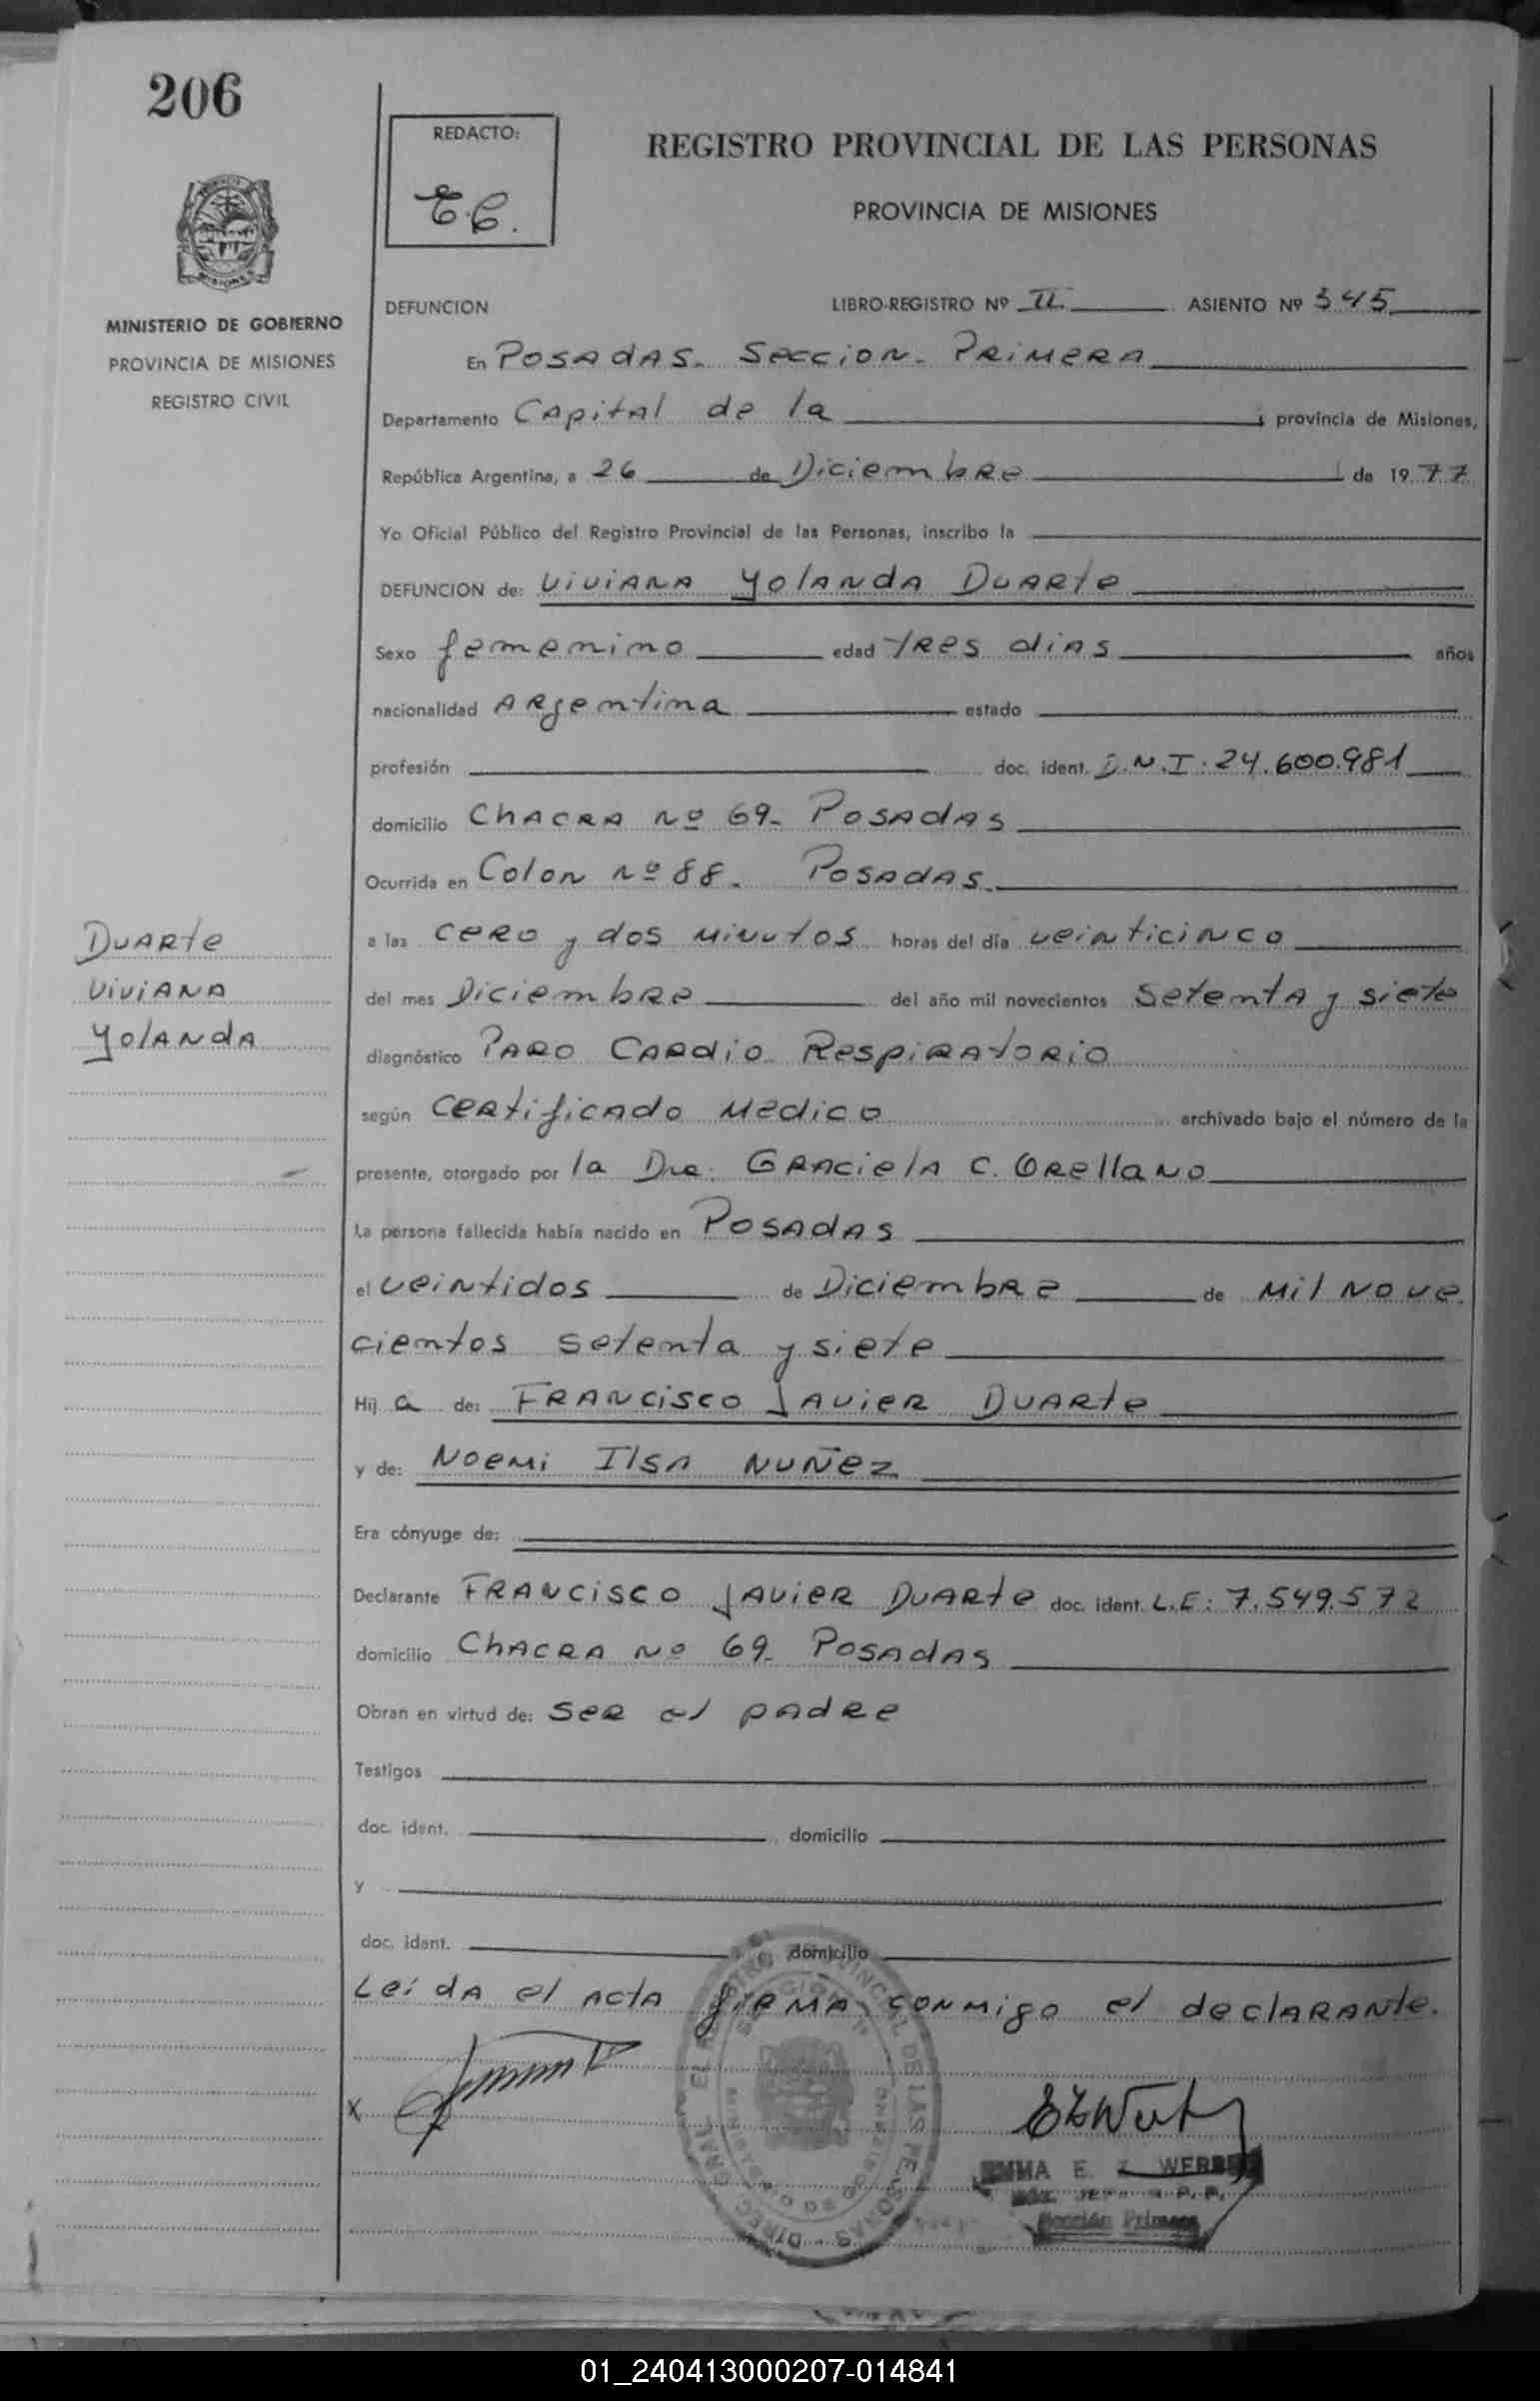 206
REDACTO:
E.C.
REGISTRO PROVINCIAL DE LAS PERSONAS
PROVINCIA DE MISIONES
MINISTERIO DE GOBIERNO
PROVINCIA DE MISIONES
REGISTRO CIVIL
DEFUNCION LIBRO-REGISTRO Nº II ASIENTO Nº 345
En Posadas. Seccion. Primera
Departamento Capital de la provincia de Misiones,
República Argentina, a 26 de Diciembre de 1977
Yo Oficial Público del Registro Provincial de las Personas, inscribo la
DEFUNCION de: Viviana Yolanda Duarte
Sexo femenino edad tres dias años
nacionalidad Argentina estado
profesión doc. ident. D.N.I: 24.600.981
domicilio Chacra Nº 69. Posadas
Ocurrida en Colon Nº 88. Posadas.
a las cero y dos minutos horas del día veinticinco
del mes Diciembre del año mil novecientos setenta y siete
diagnóstico Paro Cardio Respiratorio
según Certificado Medico archivado bajo el número de la
presente, otorgado por la Dra. Graciela C. Orellano
La persona fallecida había nacido en Posadas
el veintidos de Diciembre de mil nove
cientos setenta y siete
Hij a de: Francisco Javier Duarte
y de: Noemi Ilsa Nuñez
Era cónyuge de:
Declarante Francisco Javier Duarte doc. ident. L.E: 7.549.572
domicilio Chacra Nº 69. Posadas
Obran en virtud de: ser el padre
Testigos
doc. ident. domicilio
y
doc. ident. domicilio
Leida el acta firma conmigo el declarante.
X
EMMA E. Z. WERBE
Sección Primera
Duarte
Viviana
Yolanda
01_240413000207-014841